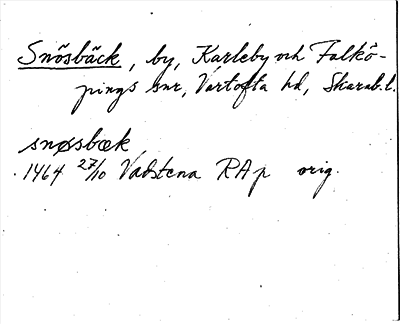 Snösbäck, by, Karleby och Falkö-
pings snr, Vartofta hd, Skarab. l.
snøssbæk
1464 27/10 Vadstena RAp orig.